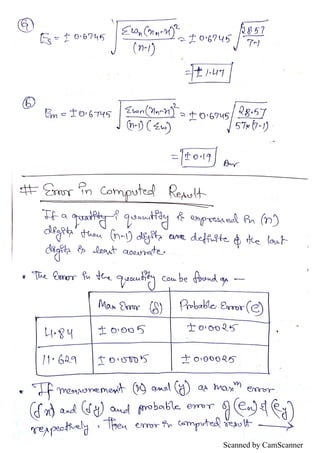 (a)
Es = ± 0.6745 √(Σωn(xn-x)² / (n-1)) = ± 0.6745 √(28.57 / 7-1)
= ± 1.47
(b)
Em = ± 0.6745 √(Σωn(xn-x)² / (n-1)(Σω)) = ± 0.6745 √(28.57 / 57×(7-1))
= ± 0.19 Ans
# Error in Computed Result
If a quantity if quantity is expressed in (n)
digits then (n-1) digits are definite & the last
digit is least accurate.
• The Error in the quantity can be found as —
Max Error (δ) Probable Error (e)
4.84 ± 0.005 ± 0.0025
11.629 ± 0.0005 ± 0.00025
• If measurement (x) and (y) as maxm error
(δx) and (δy) and probable error of (ex) & (ey)
respectively. Then error in computed result
Scanned by CamScanner